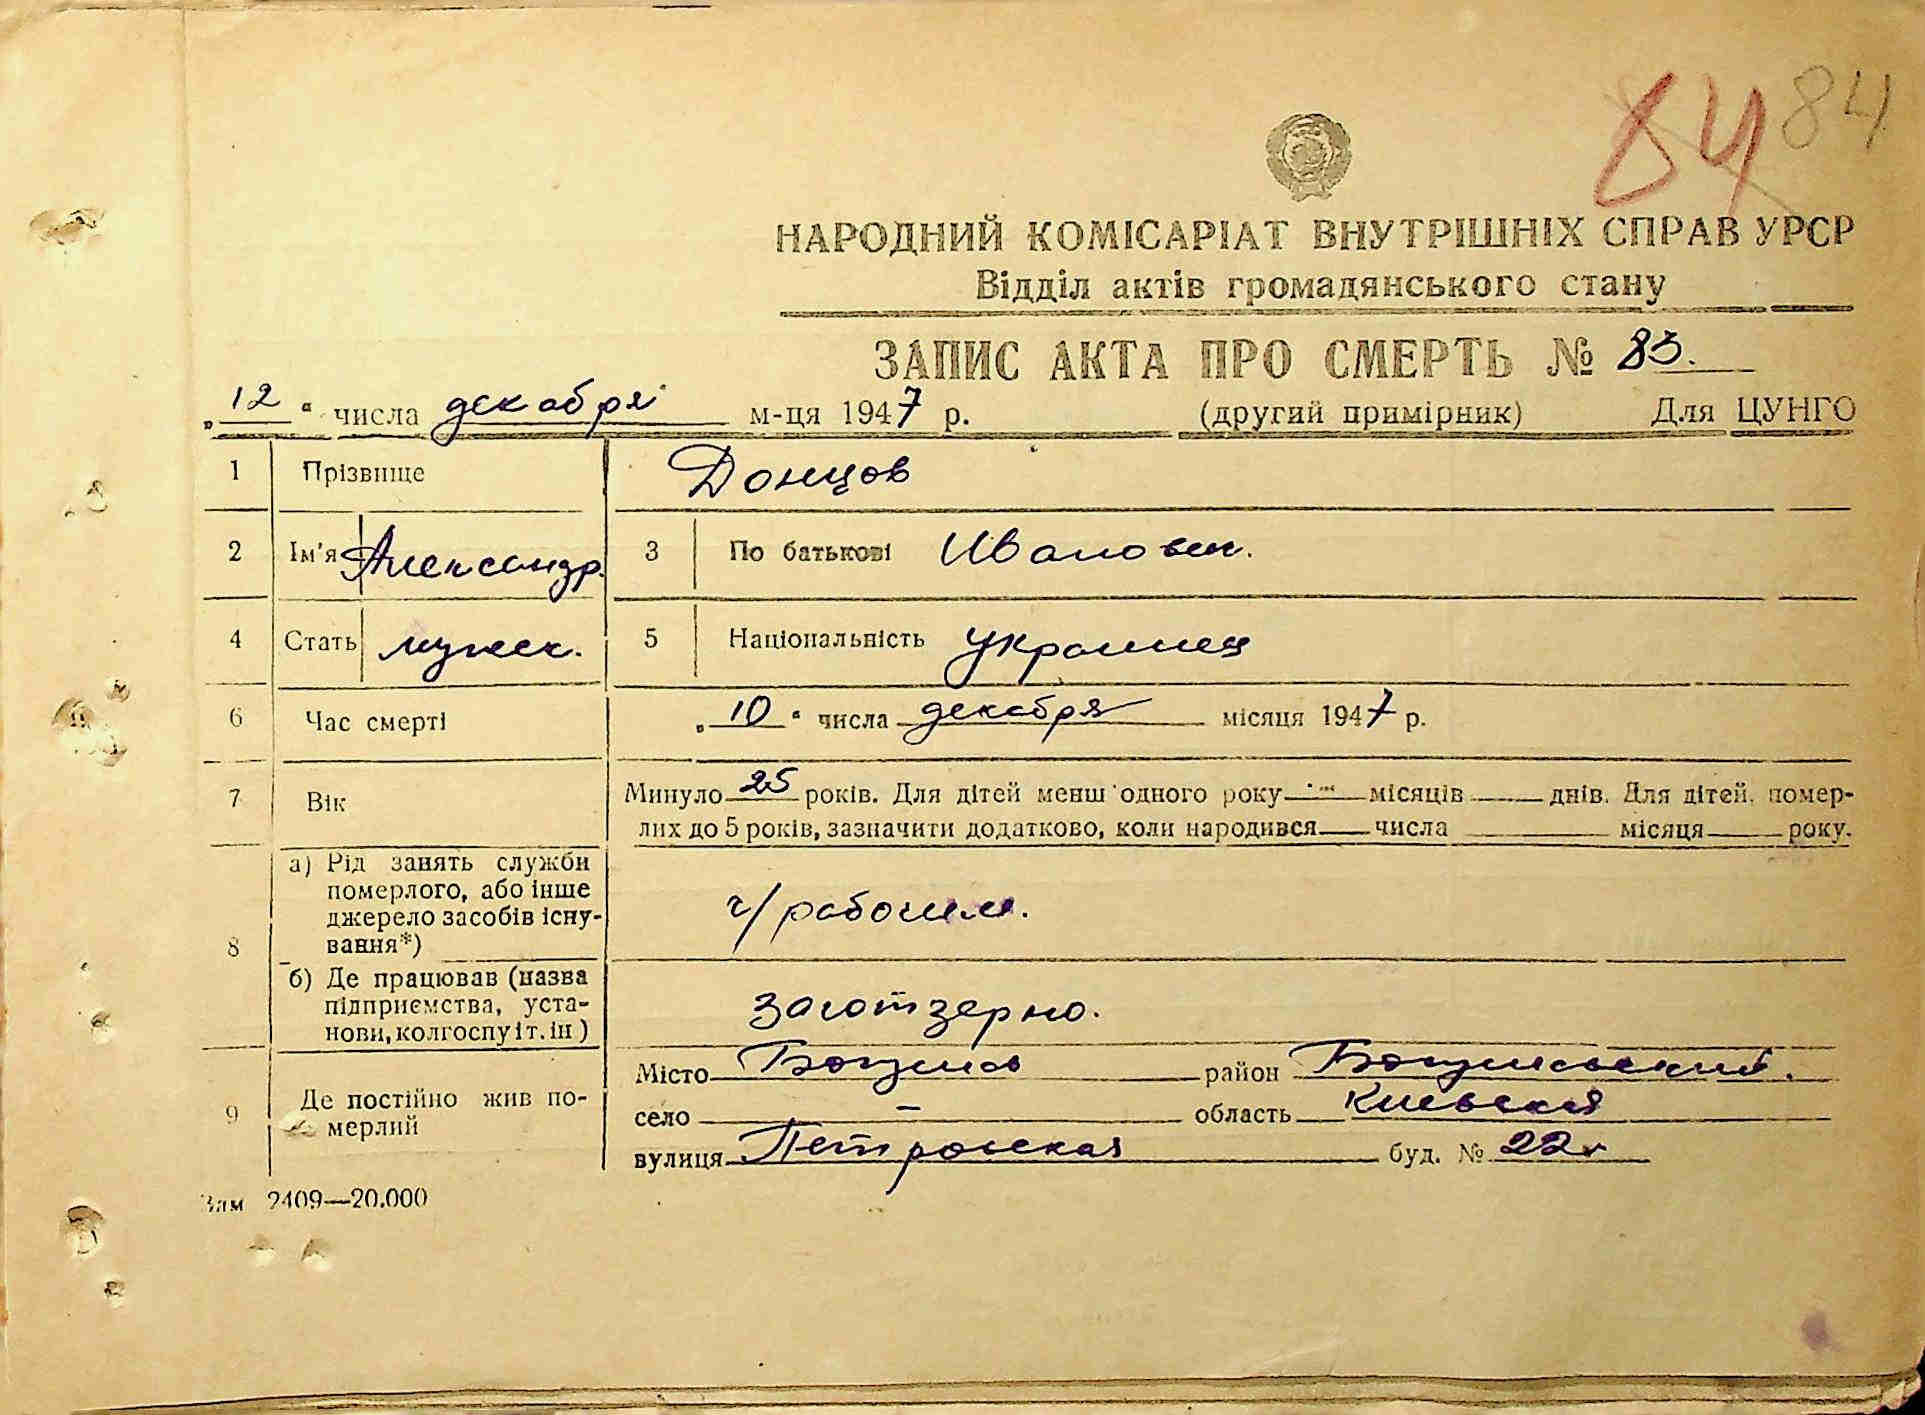 84 84
НАРОДНИЙ КОМІСАРІАТ ВНУТРІШНІХ СПРАВ УРСР
Відділ актів громадянського стану
ЗАПИС АКТА ПРО СМЕРТЬ № 83.
„12“ числа декабря м-ця 1947 р. (другий примірник) Для ЦУНГО
1 Прізвище Донцов
2 Ім'я Александр. 3 По батькові Иванович.
4 Стать мужск. 5 Національність украинец
6 Час смерті „10“ числа декабря місяця 1947 р.
7 Вік Минуло 25 років. Для дітей менш одного року — місяців — днів. Для дітей, помер-
лих до 5 років, зазначити додатково, коли народився — числа — місяця — року.
8 а) Рід занять служби
померлого, або інше
джерело засобів існу-
вання*) ч/рабочим.
б) Де працював (назва
підприємства, уста-
нови, колгоспу і т. ін ) Заготзерно.
9 Де постійно жив по-
мерлий
Місто Богуслав район Богуславский.
село — область Киевская
вулиця Петровская буд. № 22
Зам 2409—20.000